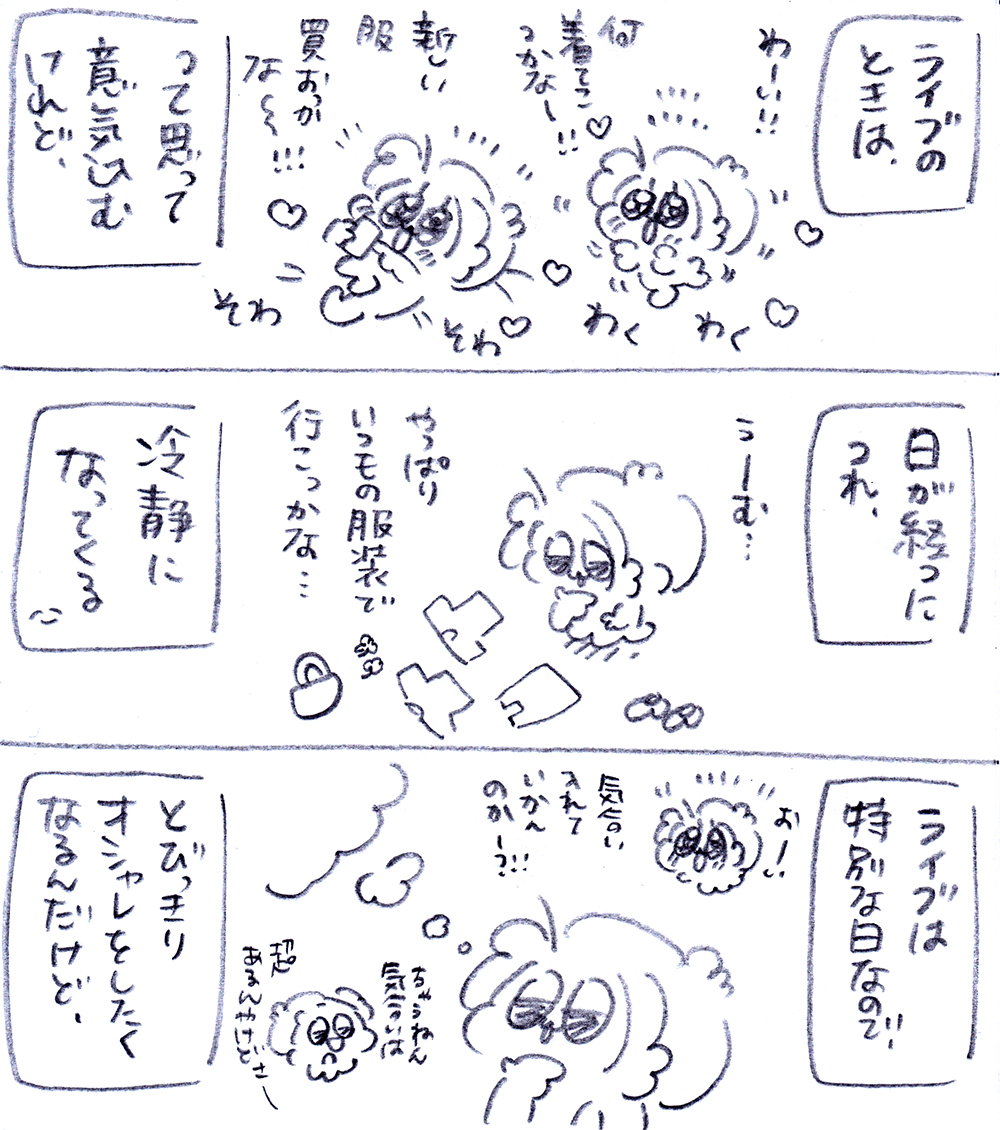 ライブの
ときは、
わーい!!
何
着てこ
っかなー!!
新しい
服
買おっか
な〜!!!
わく
わく
そわ
そわ
って思って
意気込む
けれど、
日が経つに
つれ、
うーむ…
やっぱり
いつもの服装で
行こっかな…
冷静に
なってくる
ライブは
特別な日なので、
お!!
気合い
入れて
いかん
のかー?!!
ちゃうねん
気合いは
超
あるんやけどさー
とびっきり
オシャレをしたく
なるんだけど、